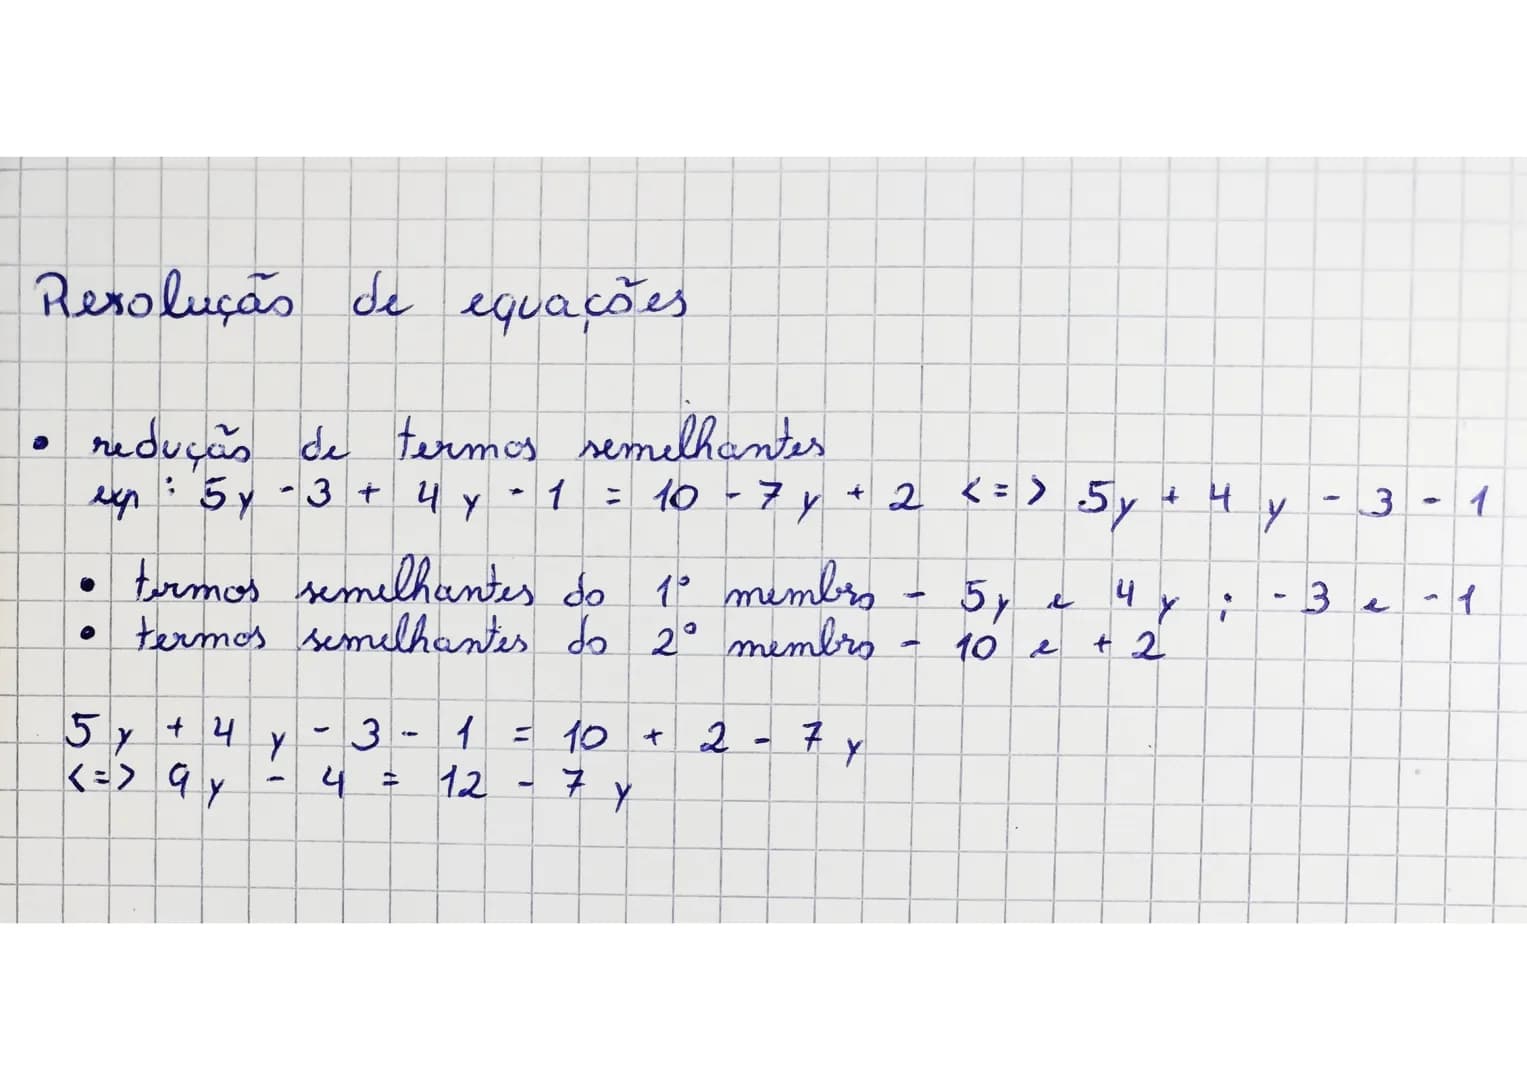 Resolução de equações
• redução de termos semelhantes
exp : 5y - 3 + 4y - 1 = 10 - 7y + 2 <=> 5y + 4y - 3 - 1
• termos semelhantes do 1º membro - 5y e 4y ; - 3 e - 1
• termos semelhantes do 2º membro - 10 e + 2
5y + 4y - 3 - 1 = 10 + 2 - 7y
<=> 9y - 4 = 12 - 7y